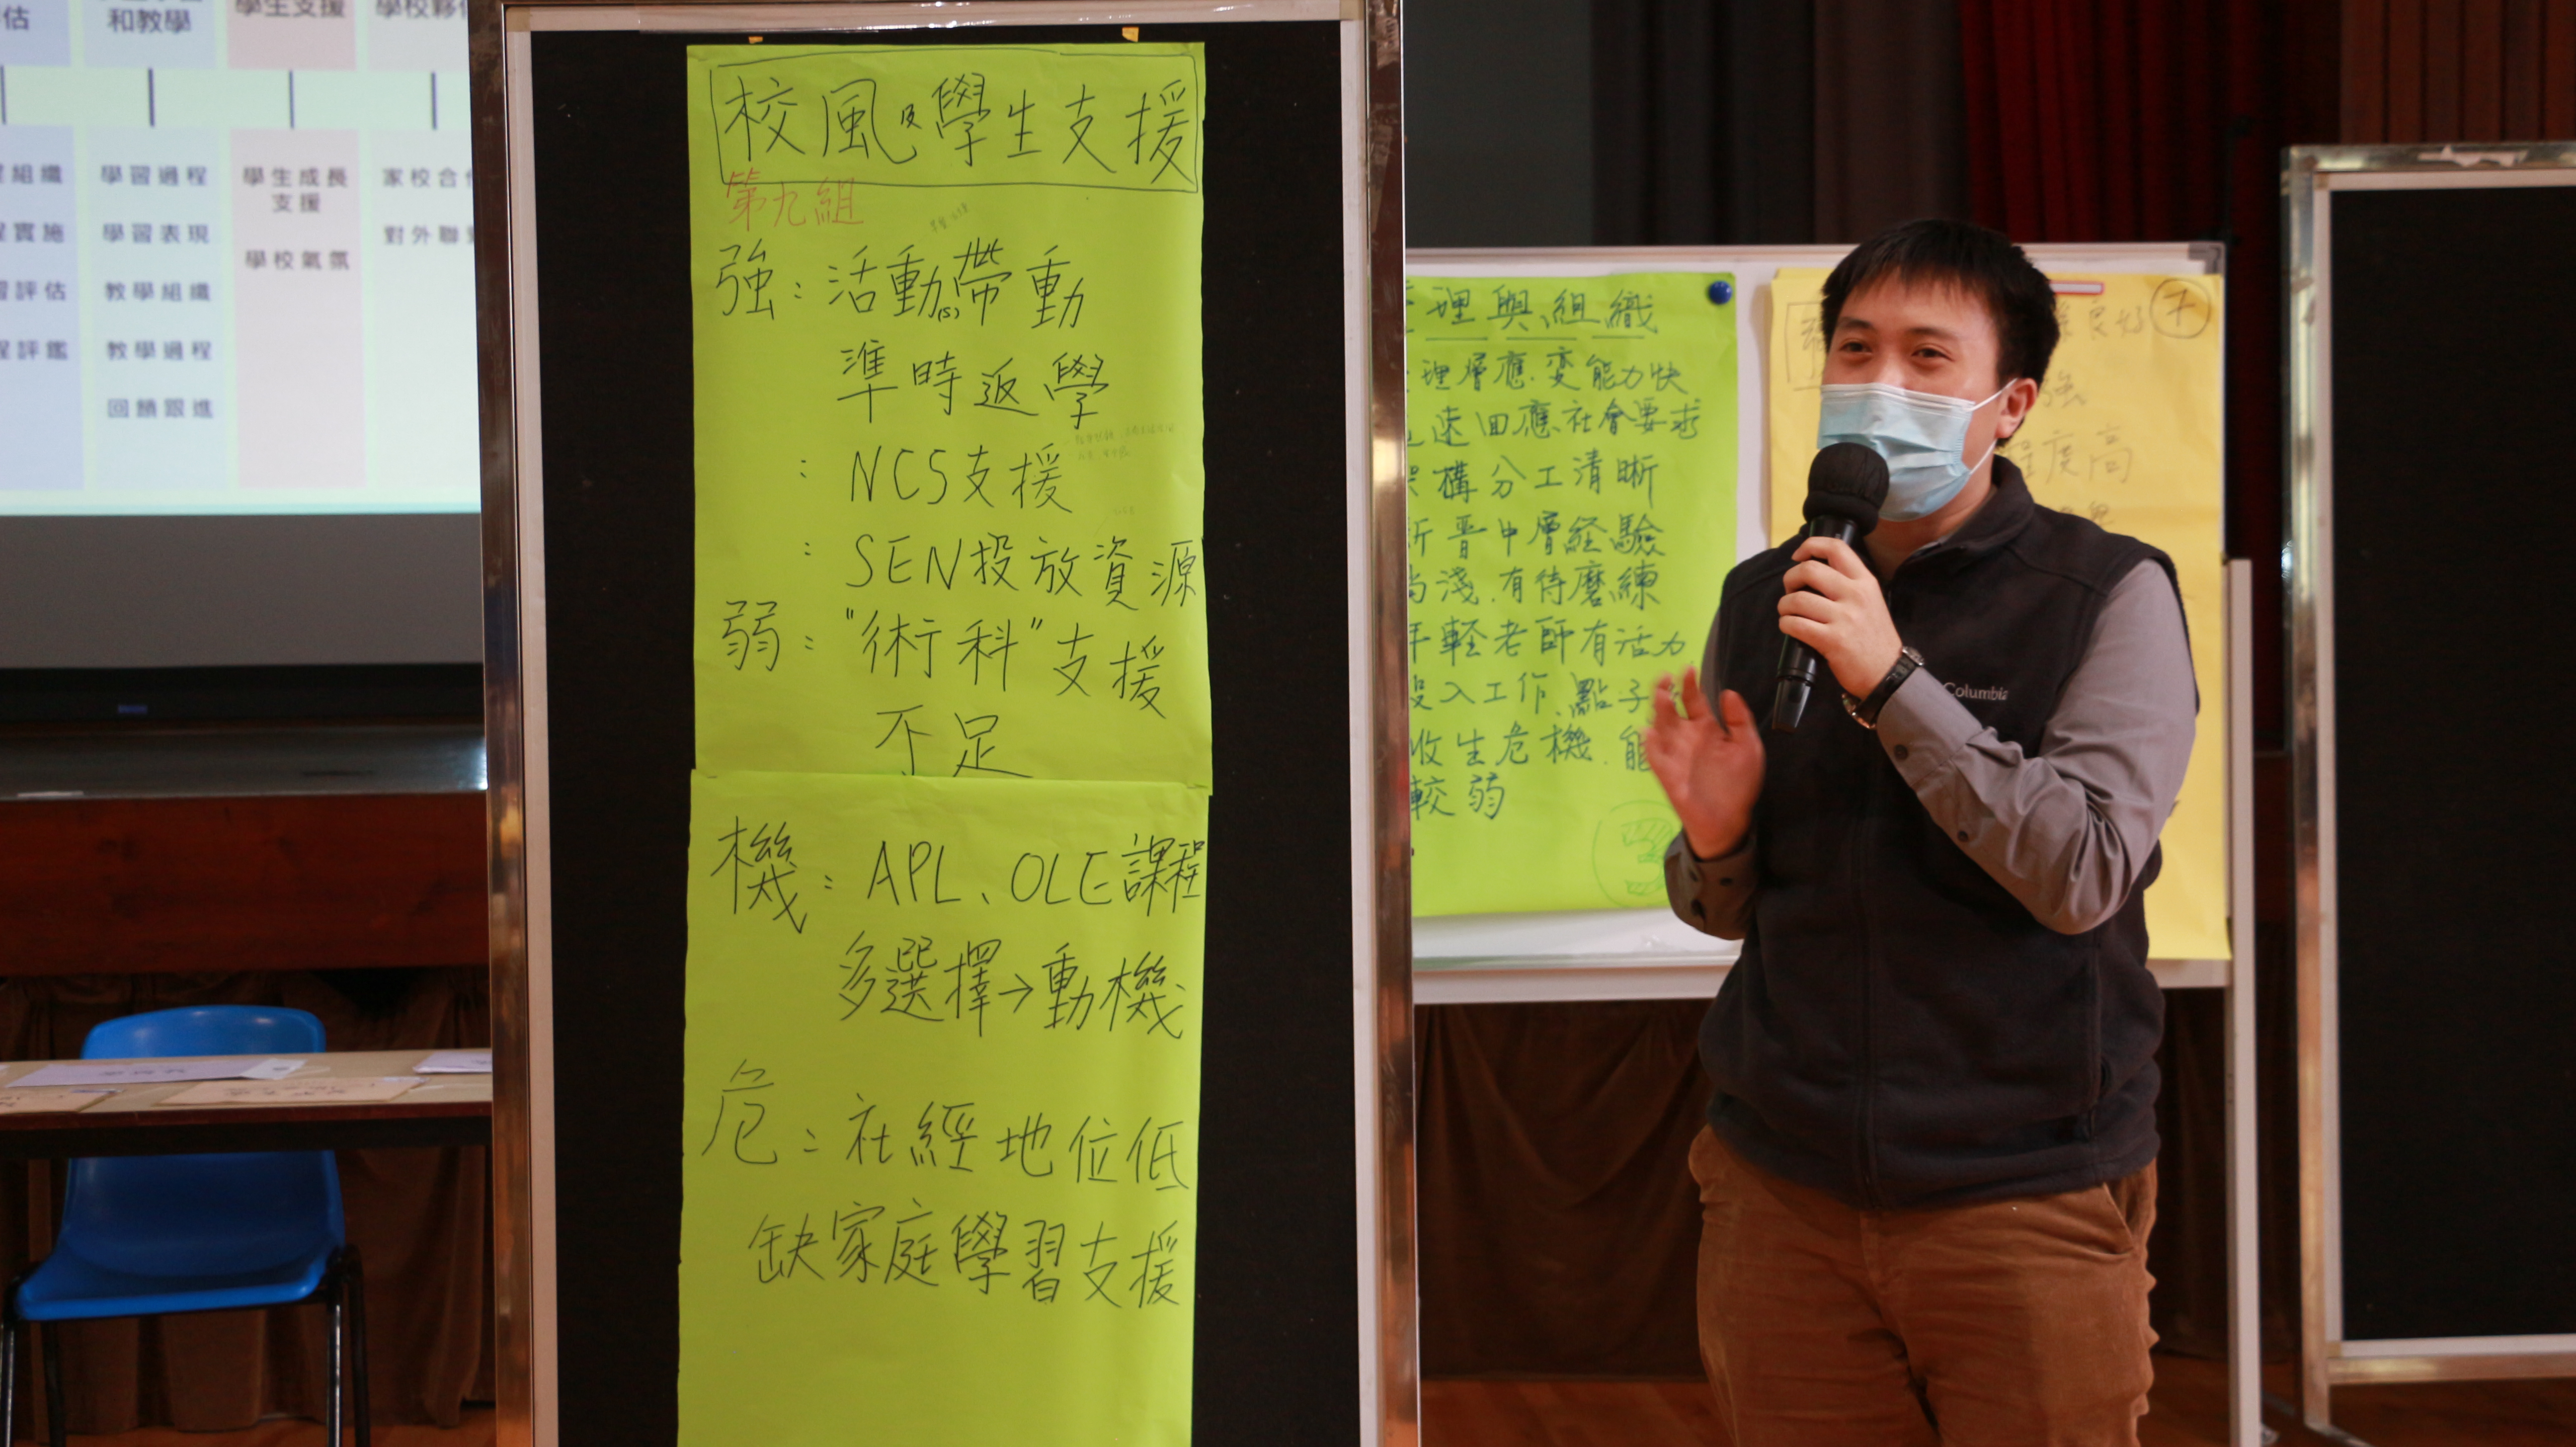 和教學
學生支援
組織
實施
評估
評鑑
學習過程
學習表現
教學組織
教學過程
回饋跟進
學生成長
支援
學校氣氛
家校合
對外聯
校風及學生支援
第九組
強：活動(s)帶動
準時返學
：NCS支援
：SEN投放資源
弱："術科"支援
不足
機：APL、OLE課程
多選擇→動機
危：社經地位低
缺家庭學習支援
理與組織
理層應变能力快
速回應社會要求
構分工清晰
新晋中層経驗
尚淺.有待磨練
年軽老師有活力
投入工作、點子
收生危機.能
較弱
3
良好
7
強
程度高
Columbia